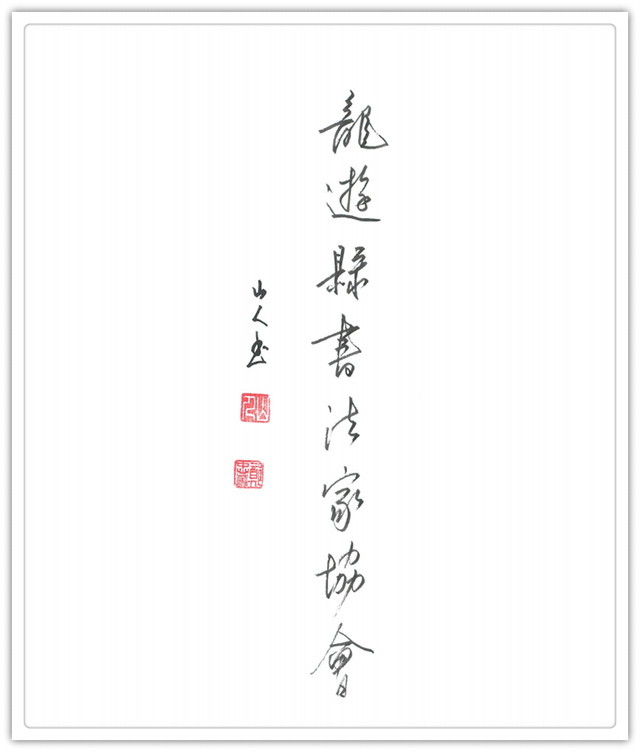 龍遊縣書法家協會
山人書
山人